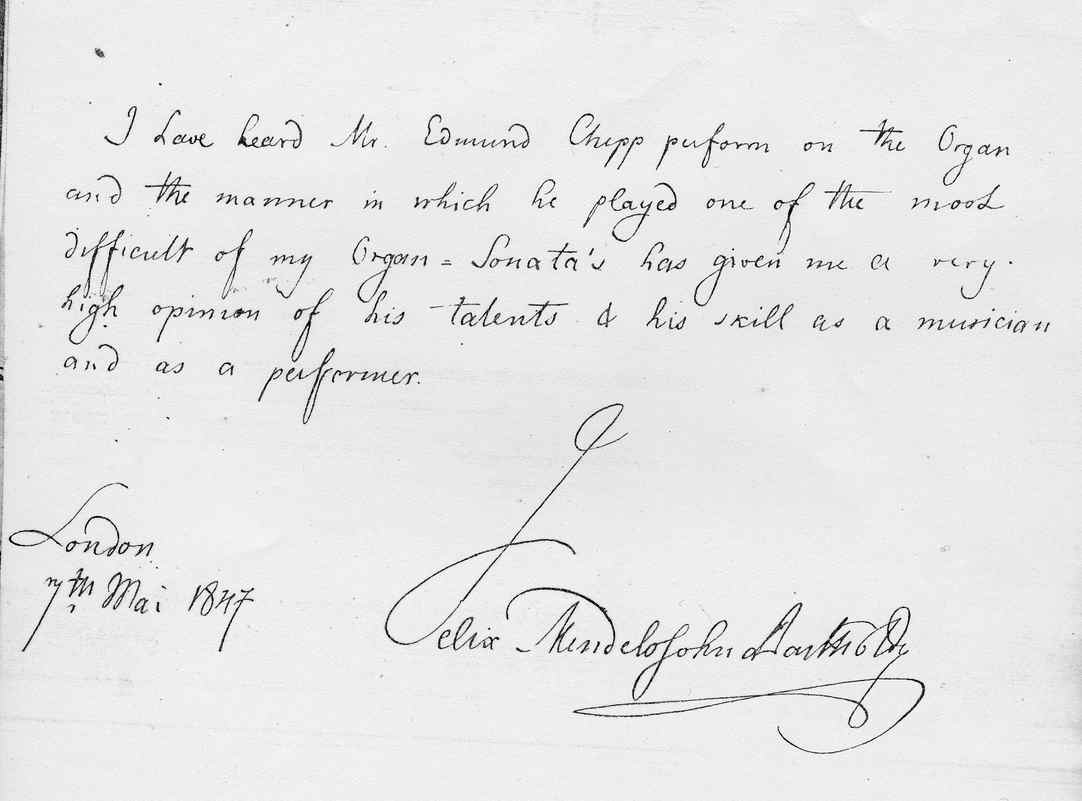 I have heard Mr. Edmund Chipp perform on the Organ
and the manner in which he played one of the most
difficult of my Organ=Sonata's has given me a very
high opinion of his talents & his skill as a musician
and as a performer.
London
7th Mai 1847
Felix Mendelssohn Bartholdy